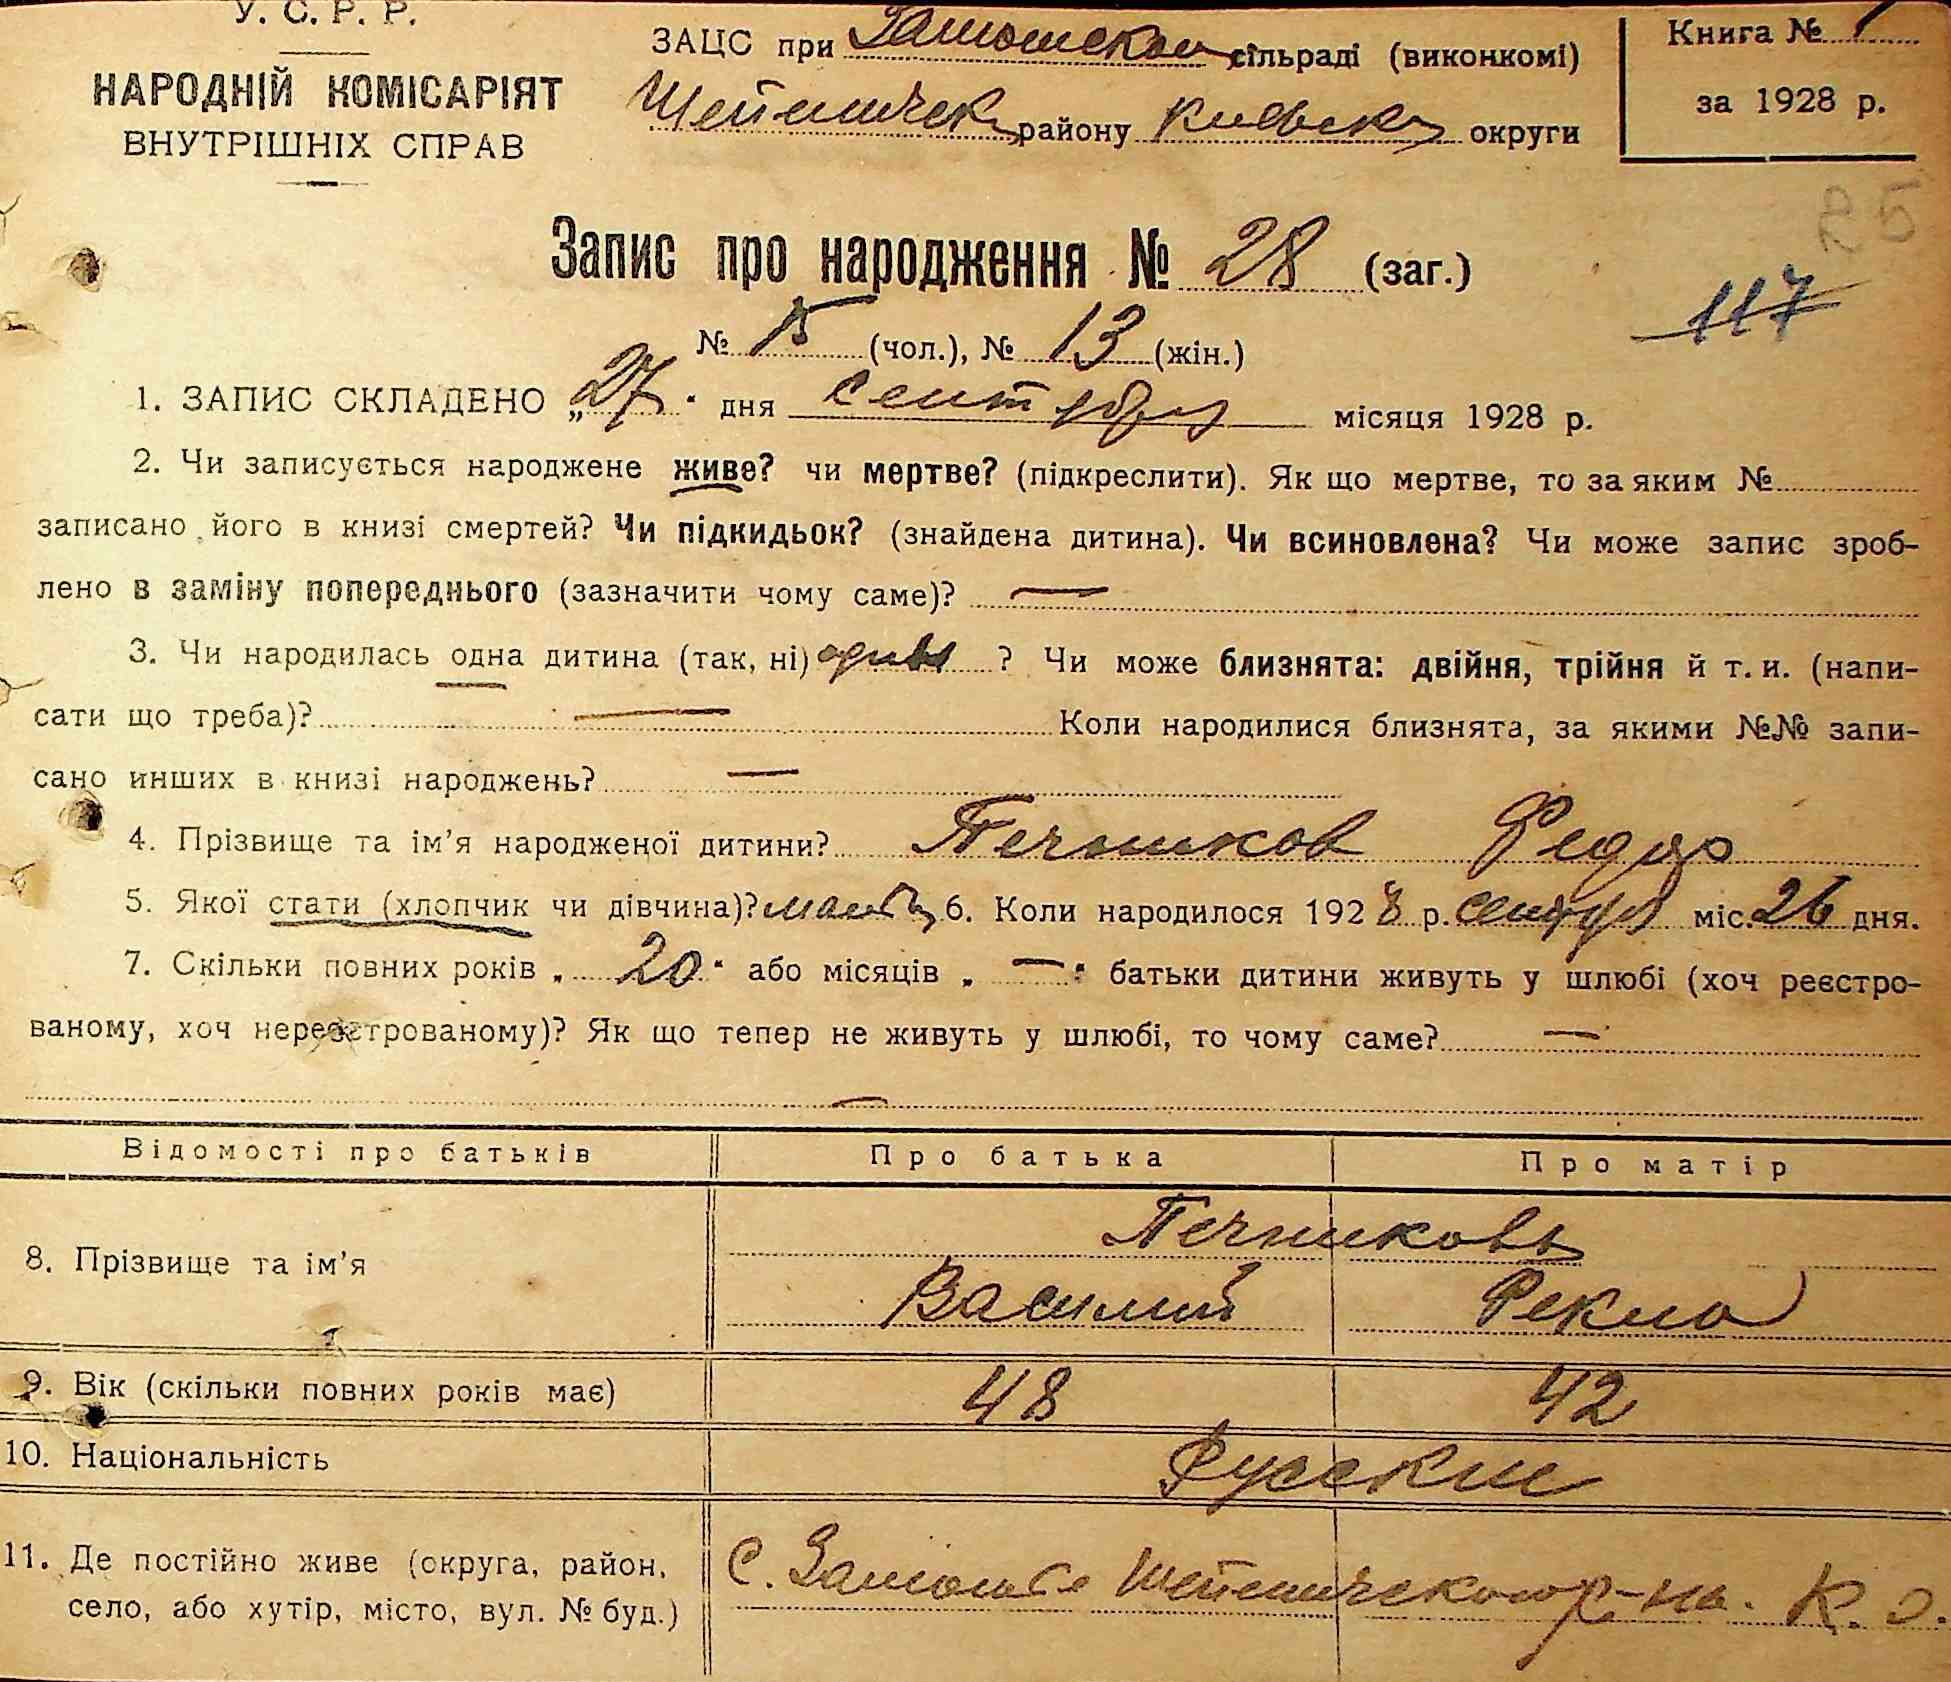 У. С. Р. Р.
НАРОДНІЙ КОМІСАРІЯТ
ВНУТРІШНІХ СПРАВ
ЗАЦС при Замошском сільраді (виконкомі)
Шепеличск району Киевск округи
Книга №
за 1928 р.
Запис про народження № 28 (заг.)
117
№ 15 (чол.), № 13 (жін.)
1. ЗАПИС СКЛАДЕНО „27" дня сентября місяця 1928 р.
2. Чи записується народжене живе? чи мертве? (підкреслити). Як що мертве, то за яким №
записано його в книзі смертей? Чи підкидьок? (знайдена дитина). Чи всиновлена? Чи може запис зроб-
лено в заміну попереднього (зазначити чому саме)? —
3. Чи народилась одна дитина (так, ні) один ? Чи може близнята: двійня, трійня й т. и. (напи-
сати що треба)? — Коли народилися близнята, за якими №№ запи-
сано инших в книзі народжень? —
4. Прізвище та ім'я народженої дитини? Печников Федор
5. Якої стати (хлопчик чи дівчина)? мальч 6. Коли народилося 1928 р. сентября міс. 26 дня.
7. Скільки повних років „ 20 " або місяців „ — " батьки дитини живуть у шлюбі (хоч реєстро-
ваному, хоч нереєстрованому)? Як що тепер не живуть у шлюбі, то чому саме? —
—
Відомості про батьків Про батька Про матір
8. Прізвище та ім'я Печниковы
Василий Фекла
9. Вік (скільки повних років має) 48 42
10. Національність Русские
11. Де постійно живе (округа, район,
село, або хутір, місто, вул. № буд.)
С. Замошье Шепеличского р-на. К. о.